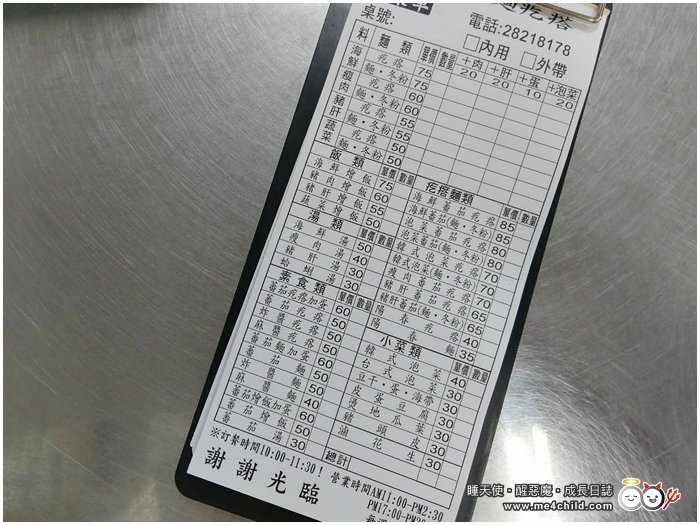 疙瘩
桌號:
電話:28218178
□內用 □外帶
料 麵 類 單價 數量 +肉20 +肝20 +蛋10 +泡菜20
海鮮 疙瘩 75
麵·冬粉 75
瘦肉 疙瘩 60
麵·冬粉 60
豬肝 疙瘩 55
麵·冬粉 55
蔬菜 疙瘩 50
麵·冬粉 50
飯 類 單價 數量
海鮮燴飯 75
豬肉燴飯 60
豬肝燴飯 55
蔬菜燴飯 50
湯 類 單價 數量
海鮮湯 50
瘦肉湯 40
豬肝湯 30
蛤蜊湯 30
素食類 單價 數量
蕃茄疙瘩加蛋 60
蕃茄疙瘩 50
炸醬疙瘩 50
麻醬疙瘩 50
蕃茄麵加蛋 60
蕃茄麵 50
炸醬麵 50
麻醬麵 40
蕃茄燴飯加蛋 60
蕃茄燴飯 50
蕃茄湯 30
疙瘩麵類 單價 數量
海鮮蕃茄疙瘩 85
海鮮蕃茄(麵·冬粉) 85
泡菜蕃茄疙瘩 80
泡菜蕃茄(麵·冬粉) 80
韓式泡菜疙瘩 70
韓式泡菜(麵·冬粉) 70
瘦肉蕃茄疙瘩 70
豬肝蕃茄疙瘩 65
豬肝蕃茄(麵·冬粉) 65
陽春疙瘩 40
陽春麵 35
小菜類 單價 數量
韓式泡菜 40
台式泡菜 30
豆干·蛋·海帶 30
皮蛋豆腐 30
燙地瓜葉 30
豬頭皮 30
滷花生 30
總計
※訂餐時間10:00-11:30！
營業時間AM11:00-PM2:30
謝謝光臨
睡天使·醒惡魔·成長日誌
www.me4child.com